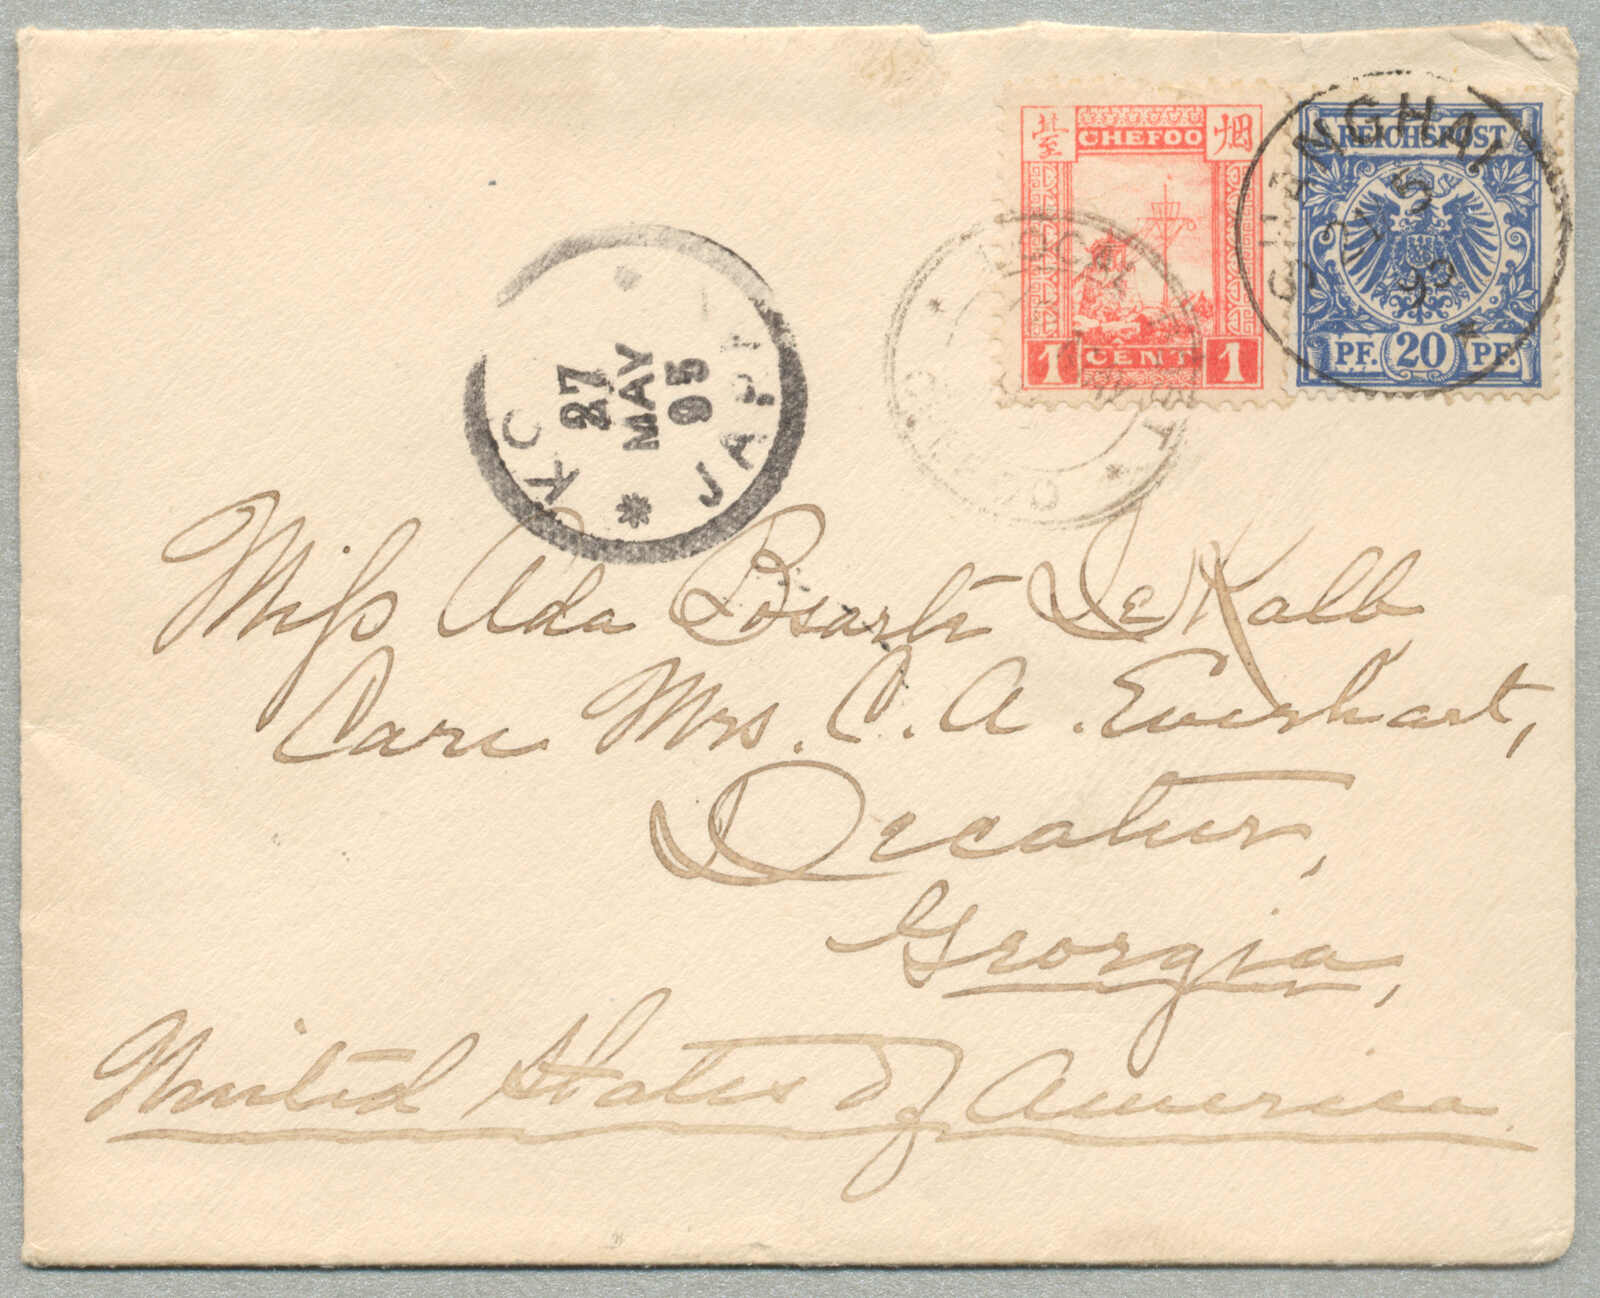 臺 CHEFOO 烟
1 CENT 1
REICHSPOST
PF. 20 PF.
SHANGHAI
LOCAL POST
27
MAY
95
JAPA
Miss Ada Bosarti DeKalb
Care Mrs. C. A. Everhart,
Decatur,
Georgia,
United States of America